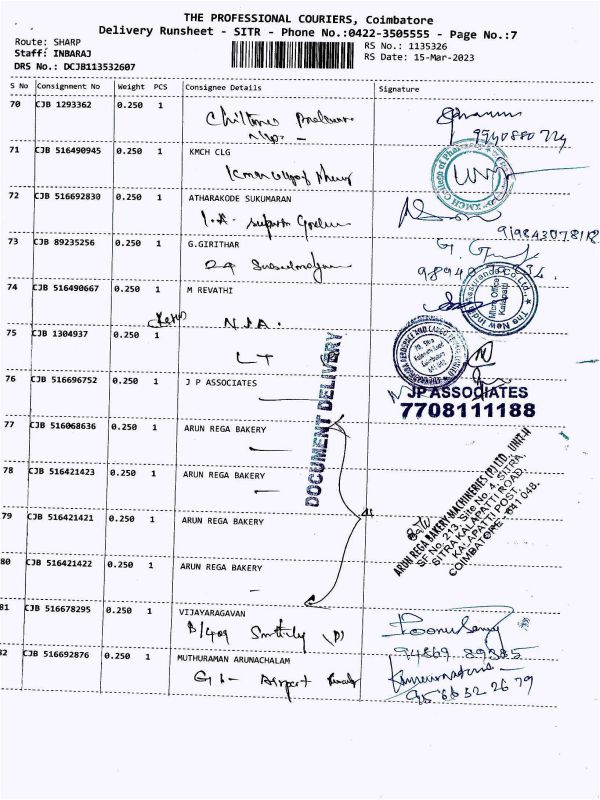 THE PROFESSIONAL COURIERS, Coimbatore
Delivery Runsheet - SITR - Phone No.:0422-3505555 - Page No.:7
Route: SHARP
Staff: INBARAJ
DRS No.: DCJB113532607
RS No.: 1135326
RS Date: 15-Mar-2023
S No Consignment No Weight PCS Consignee Details Signature
70 CJB 1293362 0.250 1
71 CJB 516490945 0.250 1 KMCH CLG
KMCH College of Pharmacy
72 CJB 516692830 0.250 1 ATHARAKODE SUKUMARAN
73 CJB 89235256 0.250 1 G.GIRITHAR
24
74 CJB 516490667 0.250 1 M REVATHI
N.I.A.
The New India Assurance Co. Ltd.,
Micro Office
Kalapatti
75 CJB 1304937 0.250 1
LT
76 CJB 516696752 0.250 1 J P ASSOCIATES
JP ASSOCIATES
7708111188
DOCUMENT DELIVERY
77 CJB 516068636 0.250 1 ARUN REGA BAKERY
78 CJB 516421423 0.250 1 ARUN REGA BAKERY
79 CJB 516421421 0.250 1 ARUN REGA BAKERY
80 CJB 516421422 0.250 1 ARUN REGA BAKERY
ARUN REGA BAKERY MACHINERIES (P) LTD., UNIT-II
SF No. 213, Site No. 4, SITRA,
SITRA KALAPATTI ROAD,
KALAPATTI POST,
COIMBATORE - 641 048.
81 CJB 516678295 0.250 1 VIJAYARAGAVAN
B/409
94869 89385
82 CJB 516692876 0.250 1 MUTHURAMAN ARUNACHALAM
Airport
95 66 52 26 79